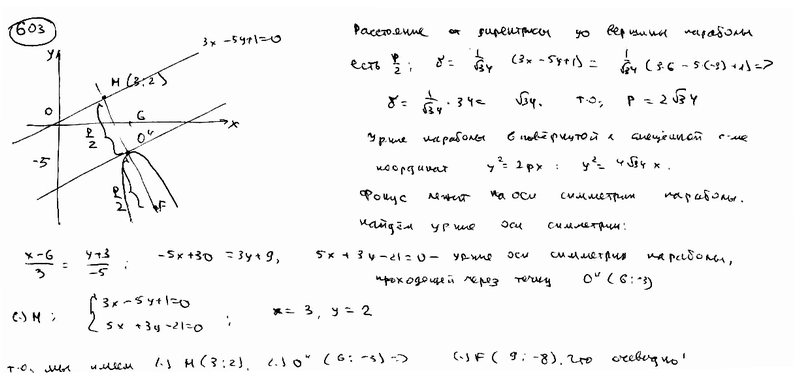 603
3x - 5y+1=0
y
M (3; 2)
0
6
x
O"
-5
p/2
p/2
F
Расстояние от директрисы до вершины параболы
есть p/2; γ = 1/√34 (3x - 5y+1) = 1/√34 (3·6 - 5(-3)+1) =>
γ = 1/√34 · 34 = √34. т.о., p = 2√34
Ур-ние параболы в повёрнутой и смещённой с-ме
координат y² = 2px : y² = 4√34 x.
Фокус лежит на оси симметрии параболы.
Найдём ур-ние оси симметрии:
(x-6)/3 = (y+3)/-5 ; -5x+30 = 3y+9, 5x + 3y - 21 = 0 - ур-ние оси симметрии параболы,
проходящей через точку O" (6; -3)
(.) M ; { 3x - 5y+1=0 5x +3y - 21 = 0 ; x = 3, y = 2
т.о. мы имеем (.) M (3; 2), (.) O" (6; -3) => (.) F ( 9; -8), что очевидно!